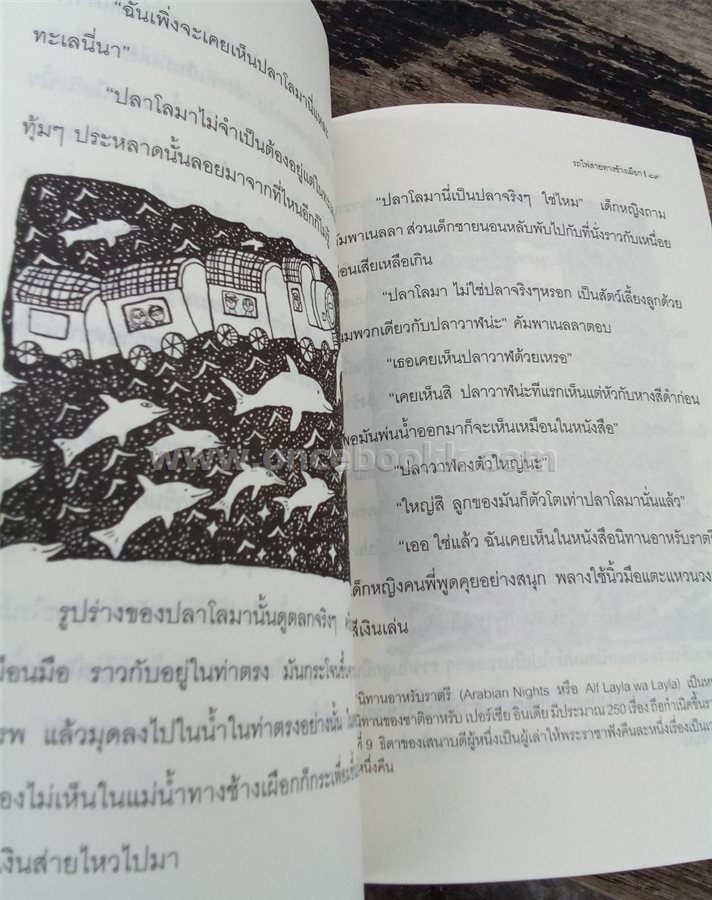 “ฉันเพิ่งจะเคยเห็นปลาโลมานี่แหละ
ทะเลนี่นา”
“ปลาโลมาไม่จำเป็นต้องอยู่แต่ใน
ทุ้มๆ ประหลาดนั้นลอยมาจากที่ไหนอีกก็ไม่รู้
รูปร่างของปลาโลมานั้นดูตลกจริงๆ
มือนมือ ราวกับอยู่ในท่าตรง มันกระโจนขึ้น
รพ แล้วมุดลงไปในน้ำในท่าตรงอย่างนั้น
องไม่เห็นในแม่น้ำทางช้างเผือกก็กระเพื่อม
งินส่ายไหวไปมา
รถไฟสายทางช้างเผือก ๘๙
“ปลาโลมานี่เป็นปลาจริงๆ ใช่ไหม” เด็กหญิงถาม
ัมพาเนลลา ส่วนเด็กชายนอนหลับพับไปกับที่นั่งราวกับเหนื่อย
่อนเสียเหลือเกิน
“ปลาโลมา ไม่ใช่ปลาจริงๆหรอก เป็นสัตว์เลี้ยงลูกด้วย
นมพวกเดียวกับปลาวาฬน่ะ” คัมพาเนลลาตอบ
“เธอเคยเห็นปลาวาฬด้วยเหรอ”
“เคยเห็นสิ ปลาวาฬน่ะที่แรกเห็นแต่หัวกับหางสีดำก่อน
พอมันพ่นน้ำออกมาก็จะเห็นเหมือนในหนังสือ”
www.oncebookk.com
“ปลาวาฬองตัวใหญ่นะ”
“ใหญ่สิ ลูกของมันก็ตัวโตเท่าปลาโลมานั่นแล้ว”
“เออ ใช่แล้ว ฉันเคยเห็นในหนังสือนิทานอาหรับราตรี
ด็กหญิงคนพี่พูดคุยอย่างสนุก พลางใช้นิ้วมือแตะแหวนวง
สีเงินเล่น
นิทานอาหรับราตรี (Arabian Nights หรือ Alf Layla wa Layla) เป็น
นิทานของชาติอาหรับ เปอร์เซีย อินเดีย มีประมาณ 250 เรื่อง ถือกำเนิดขึ้น
ที่ 9 ธิดาของเสนาบดีผู้หนึ่งเป็นผู้เล่าให้พระราชาฟังคืนละหนึ่งเรื่องเป็น
หนึ่งคืน